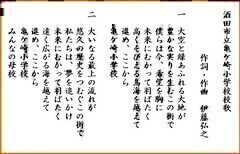 酒田市立亀ケ崎小学校校歌
作詞・作曲　伊藤弘之
一　大空と緑あふれる大地が
豊かな実りを生むこの街で
僕らは今、希望を胸に
未来にむかって羽ばたく
高くそびえる鳥海を越えて
進め、ここから
亀ケ崎小学校
二　大いなる最上の流れが
悠久の歴史をつむぐこの街で
私たちは、夢を追いかけ
未来にむかって羽ばたく
遠く広がる海を越えて
進め、ここから
亀ケ崎小学校
みんなの母校